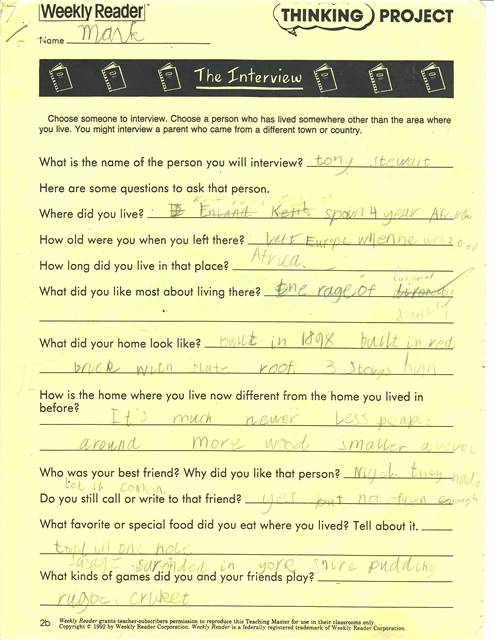 Weekly Reader
THINKING PROJECT
Name Mark
The Interview
Choose someone to interview. Choose a person who has lived somewhere other than the area where
you live. You might interview a parent who came from a different town or country.
What is the name of the person you will interview? tony stewart
Here are some questions to ask that person.
Where did you live? Enland Kent spain 4 year
How old were you when you left there? left Europe when he was
How long did you live in that place? Africa.
What did you like most about living there? the rage of
What did your home look like? built in 1898 built in red
brick with slate roof. 3 storys high
How is the home where you live now different from the home you lived in
before?
It's much newer Less people
around more wood smaller
Who was your best friend? Why did you like that person? Nigel they had a
lot in common.
Do you still call or write to that friend? yes but not often enough
What favorite or special food did you eat where you lived? Tell about it.
toad in the hole
suronded in yore shire pudding
What kinds of games did you and your friends play?
rugbe, cricket
2b
Weekly Reader grants teacher-subscribers permission to reproduce this Teaching Master for use in their classrooms only.
Copyright © 1992 by Weekly Reader Corporation. Weekly Reader is a federally registered trademark of Weekly Reader Corporation.